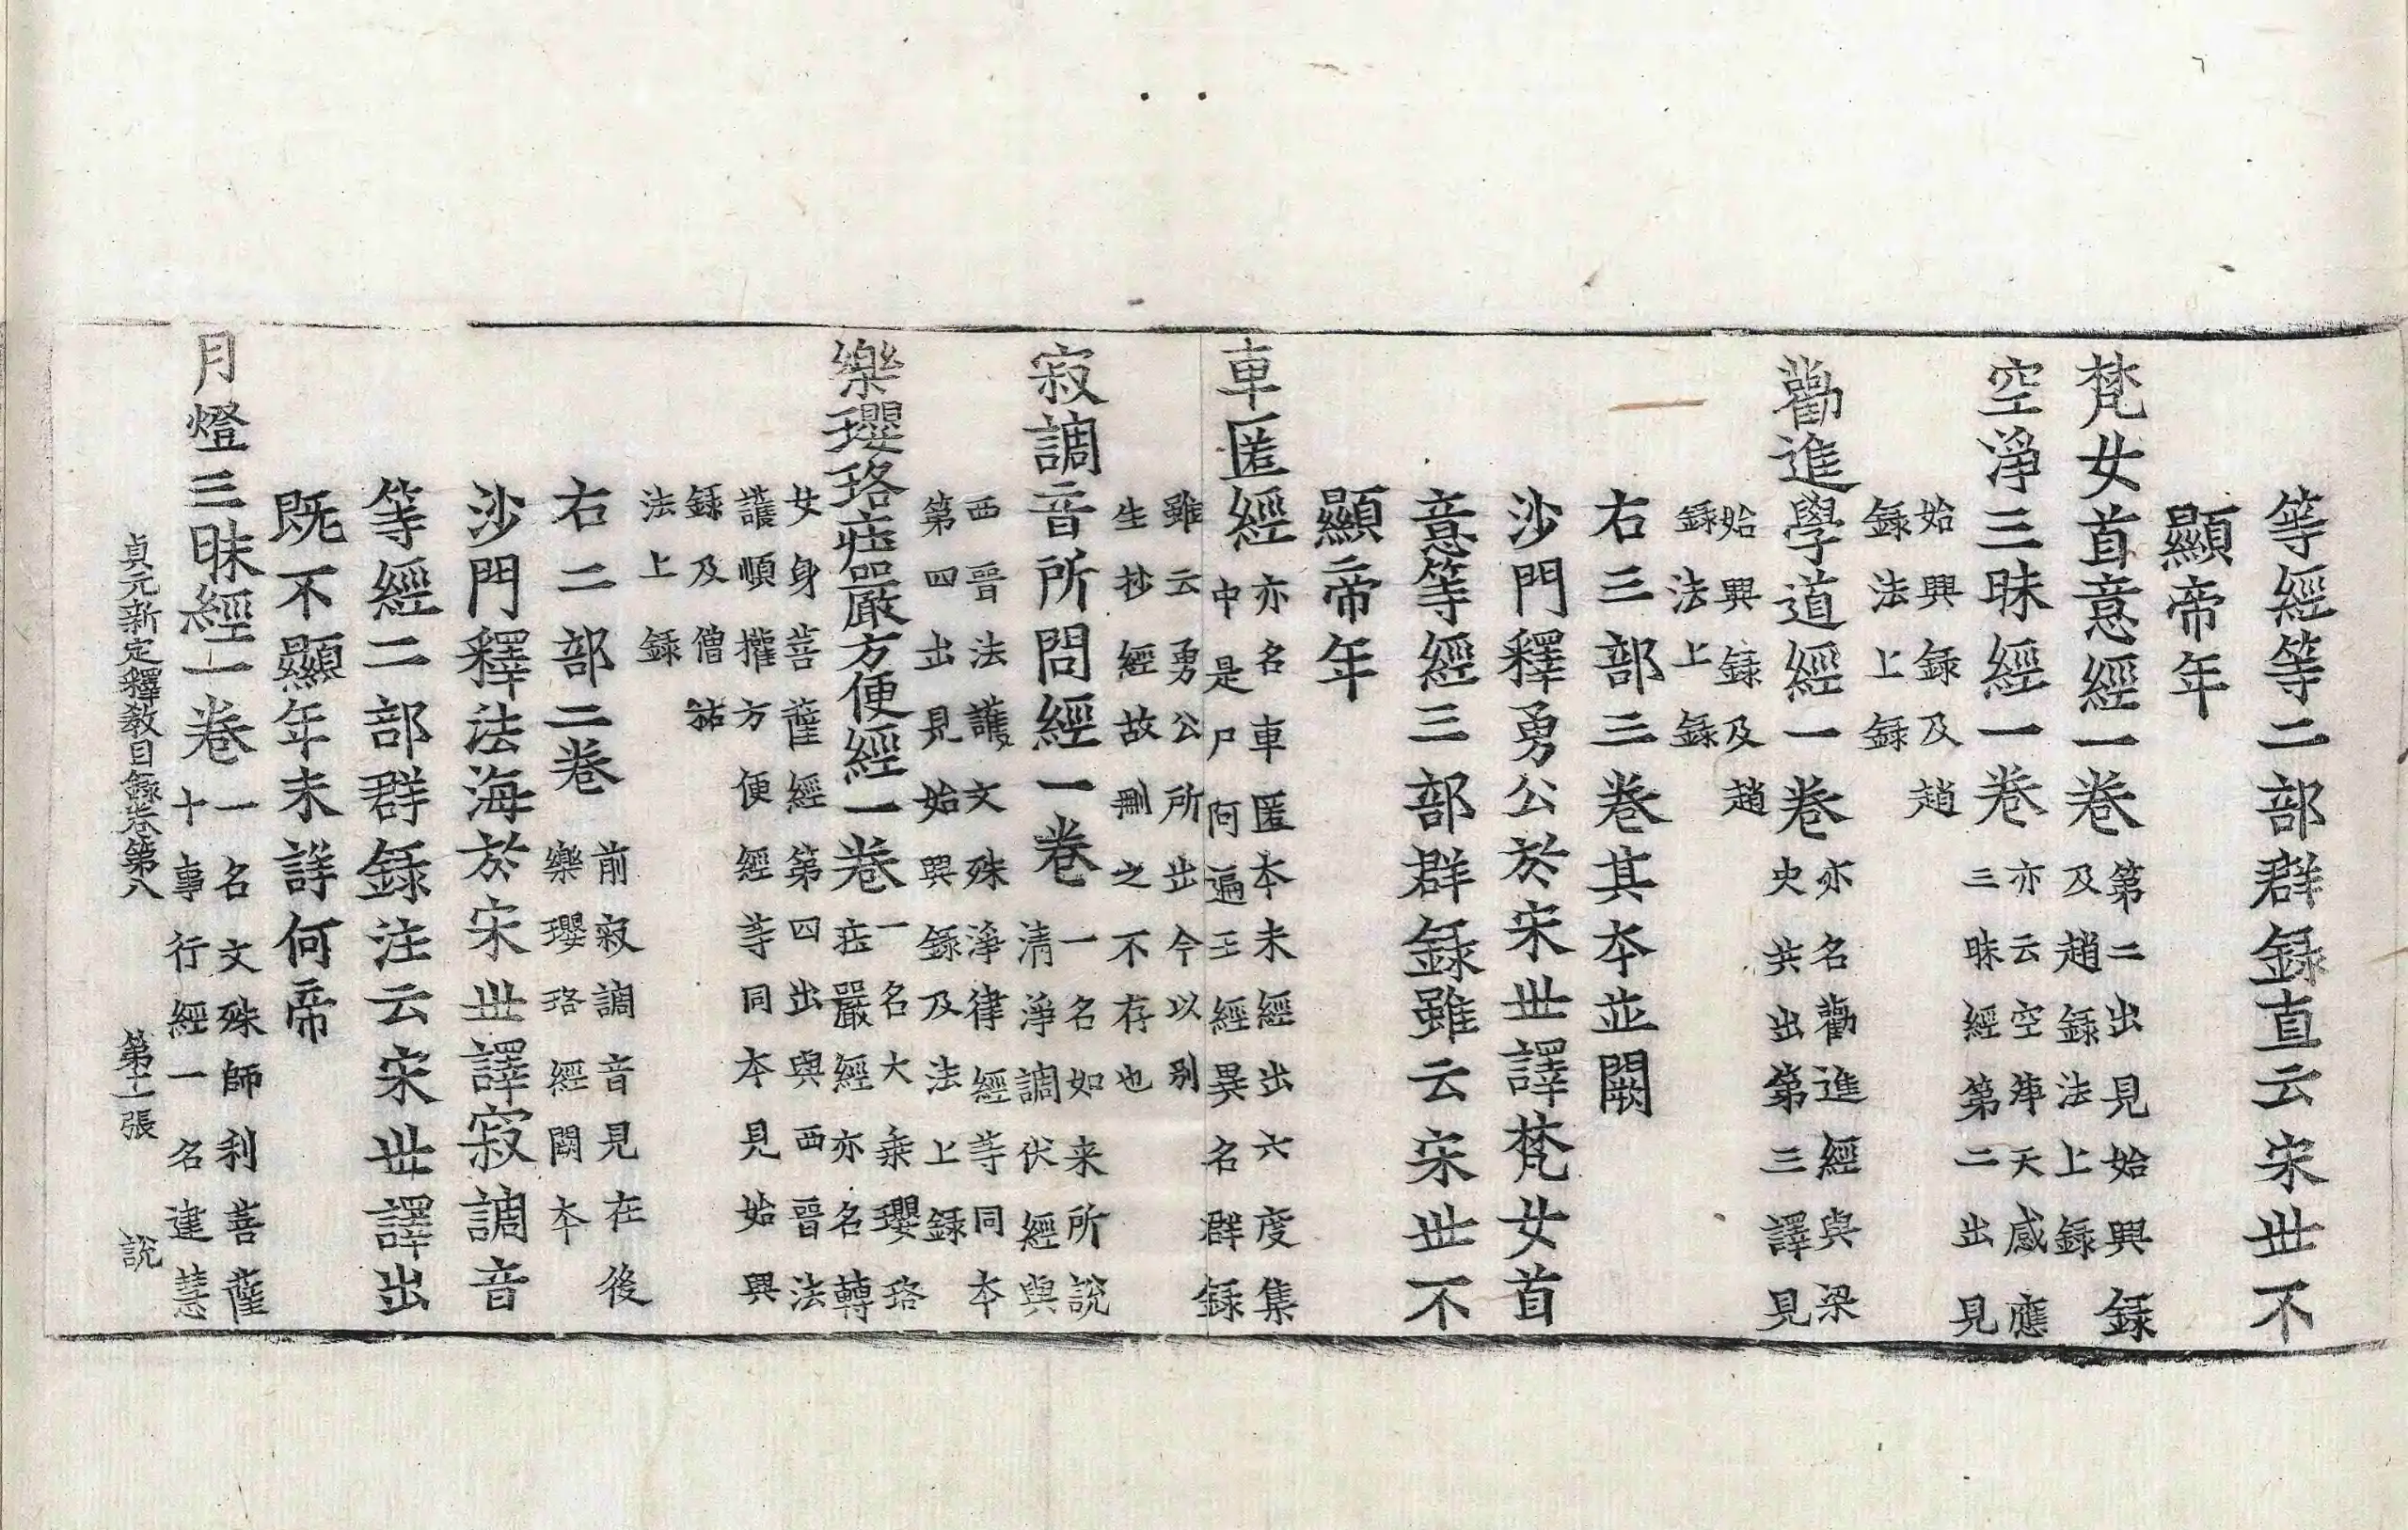 等經等二部群録直云宋世不
顯帝年
梵女首意經一卷 第二出見始興録
及趙録法上録
空淨三昧經一卷 亦云空淨天感應
三昧經第二出見
始興録及趙
録法上録
勸進學道經一卷 亦名勸進經與梁
史共出第三譯見
始興録及趙
録法上録
右三部三卷其夲並闕
沙門釋勇公於宋世譯梵女首
意等經三部群録雖云宋世不
顯帝年
車匿經 亦名車匿夲未經出六度集
中是尸阿遍王經異名群録
雖云勇公所出今以别
生抄經故刪之不存也
寂調音所問經一卷 一名如来所說
清淨調伏經與
西晉法護文殊淨律經等同夲
第四出見始興録及法上録
樂瓔珞莊嚴方便經一卷 一名大乘瓔珞
莊嚴經亦名轉
女身菩薩經第四出與西晉法
護順權方便經等同夲見始興
録及僧祐
法上録
右二部二卷 前寂調音見在後
樂瓔珞經闕夲
沙門釋法海於宋世譯寂調音
等經二部群錄注云宋世譯出
既不顯年未詳何帝
月燈三昧經一卷 一名文殊師利菩薩
十事行經一名逮慧
貞元新定釋教目錄卷第八 第十二張 說